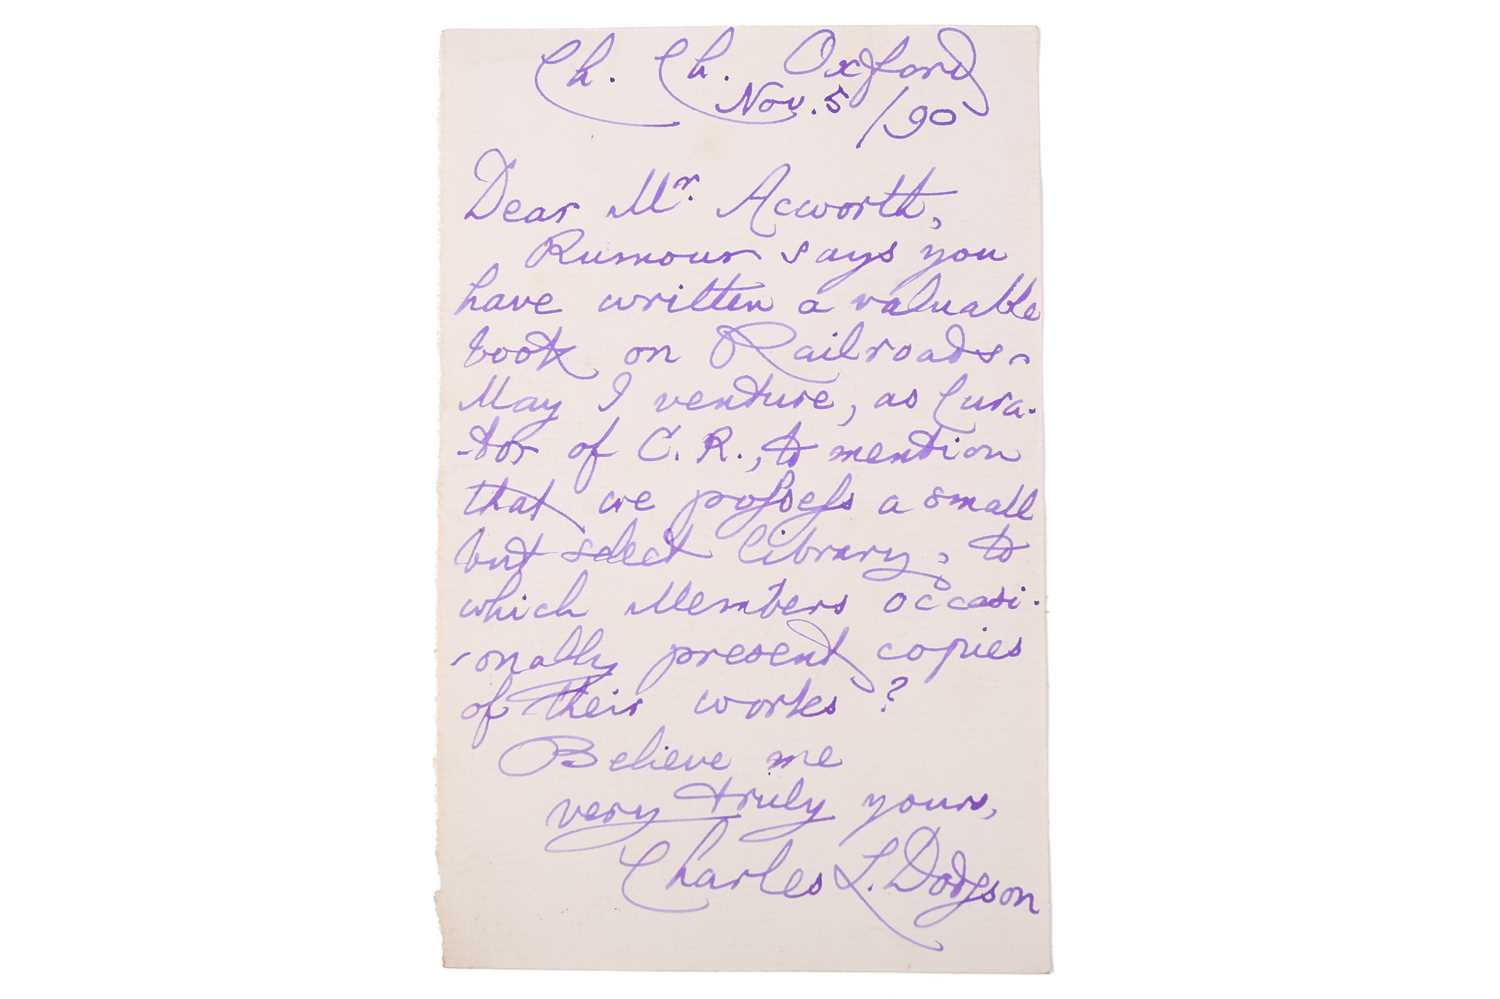 Ch. Ch. Oxford
Nov. 5/90
Dear Mr. Acworth,
Rumour says you
have written a valuable
book on Railroads.
May I venture, as Cura-
-tor of C. R., to mention
that we possess a small
but select library, to
which Members occasi-
-onally present copies
of their works?
Believe me
very truly yours,
Charles L. Dodgson